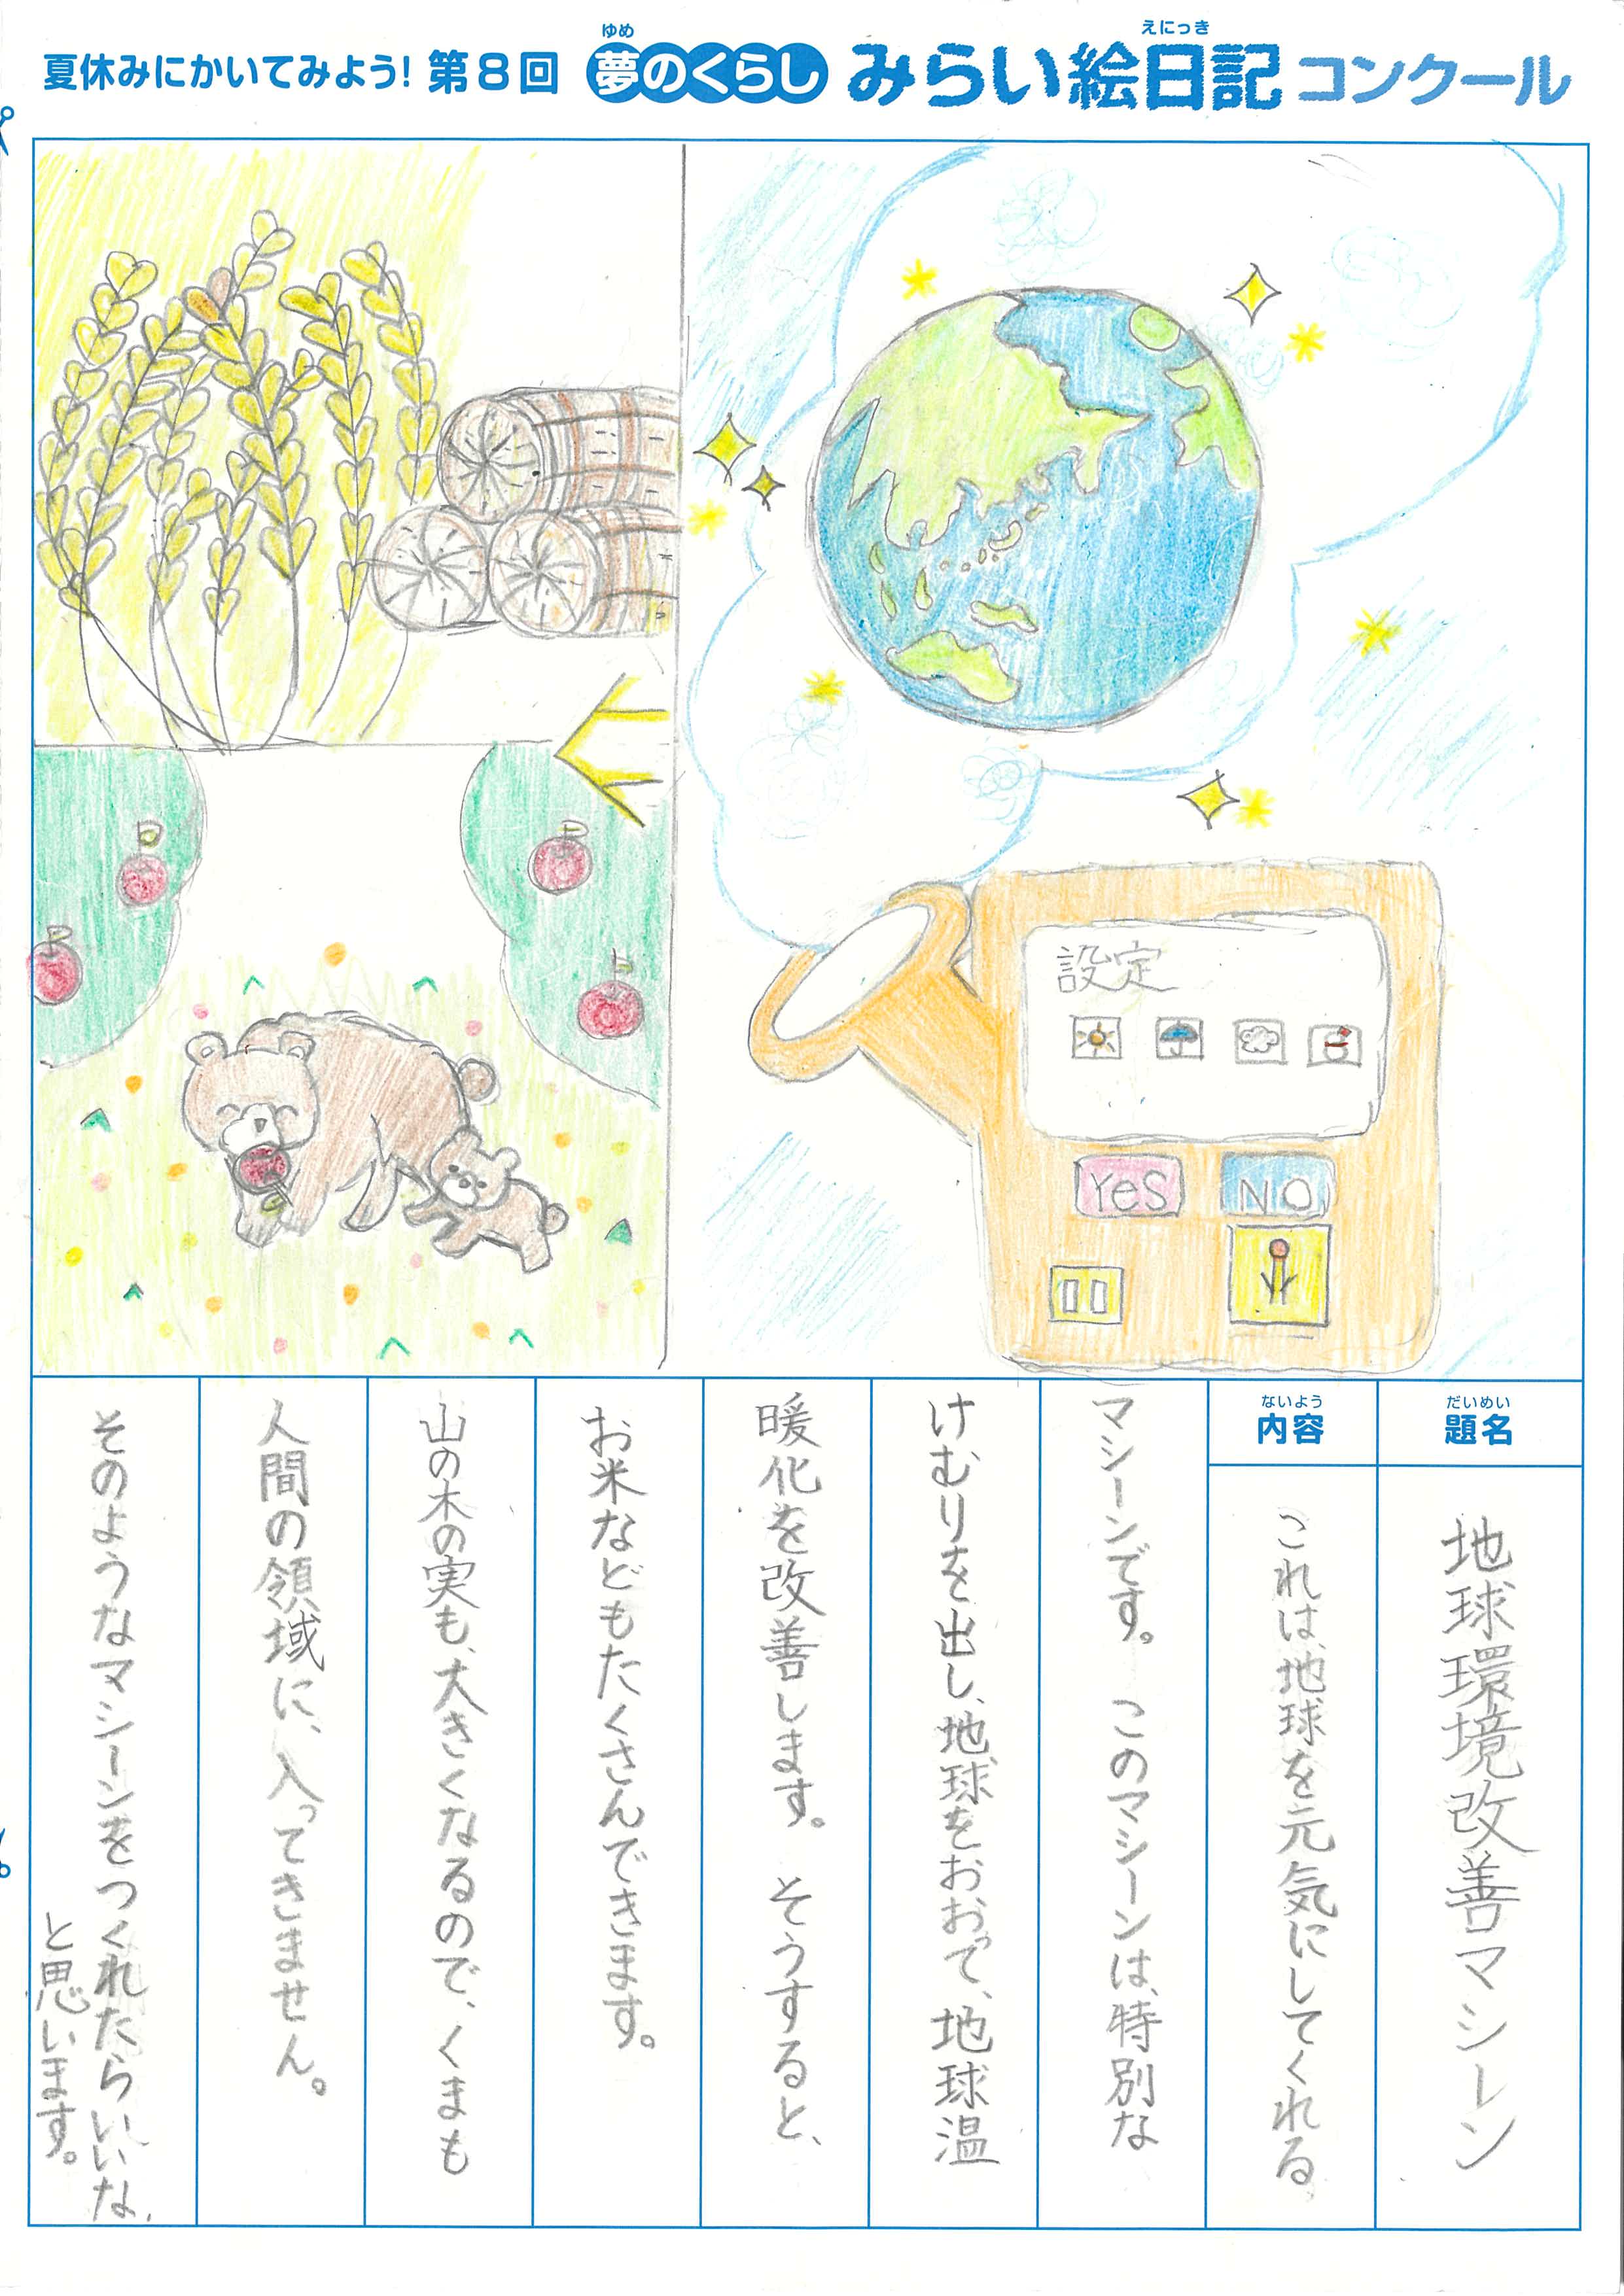 夏休みにかいてみよう! 第8回 夢のくらし みらい絵日記コンクール
ゆめ
えにっき
設定
Yes
NO
だいめい
題名
地球環境改善マシーン
ないよう
内容
これは、地球を元気にしてくれる
マシーンです。このマシーンは、特別な
けむりを出し、地球をおおって、地球温
暖化を改善します。そうすると、
お米などもたくさんできます。
山の木の実も、大きくなるので、くまも
人間の領域に、入ってきません。
そのようなマシーンをつくれたらいいな、
と思います。